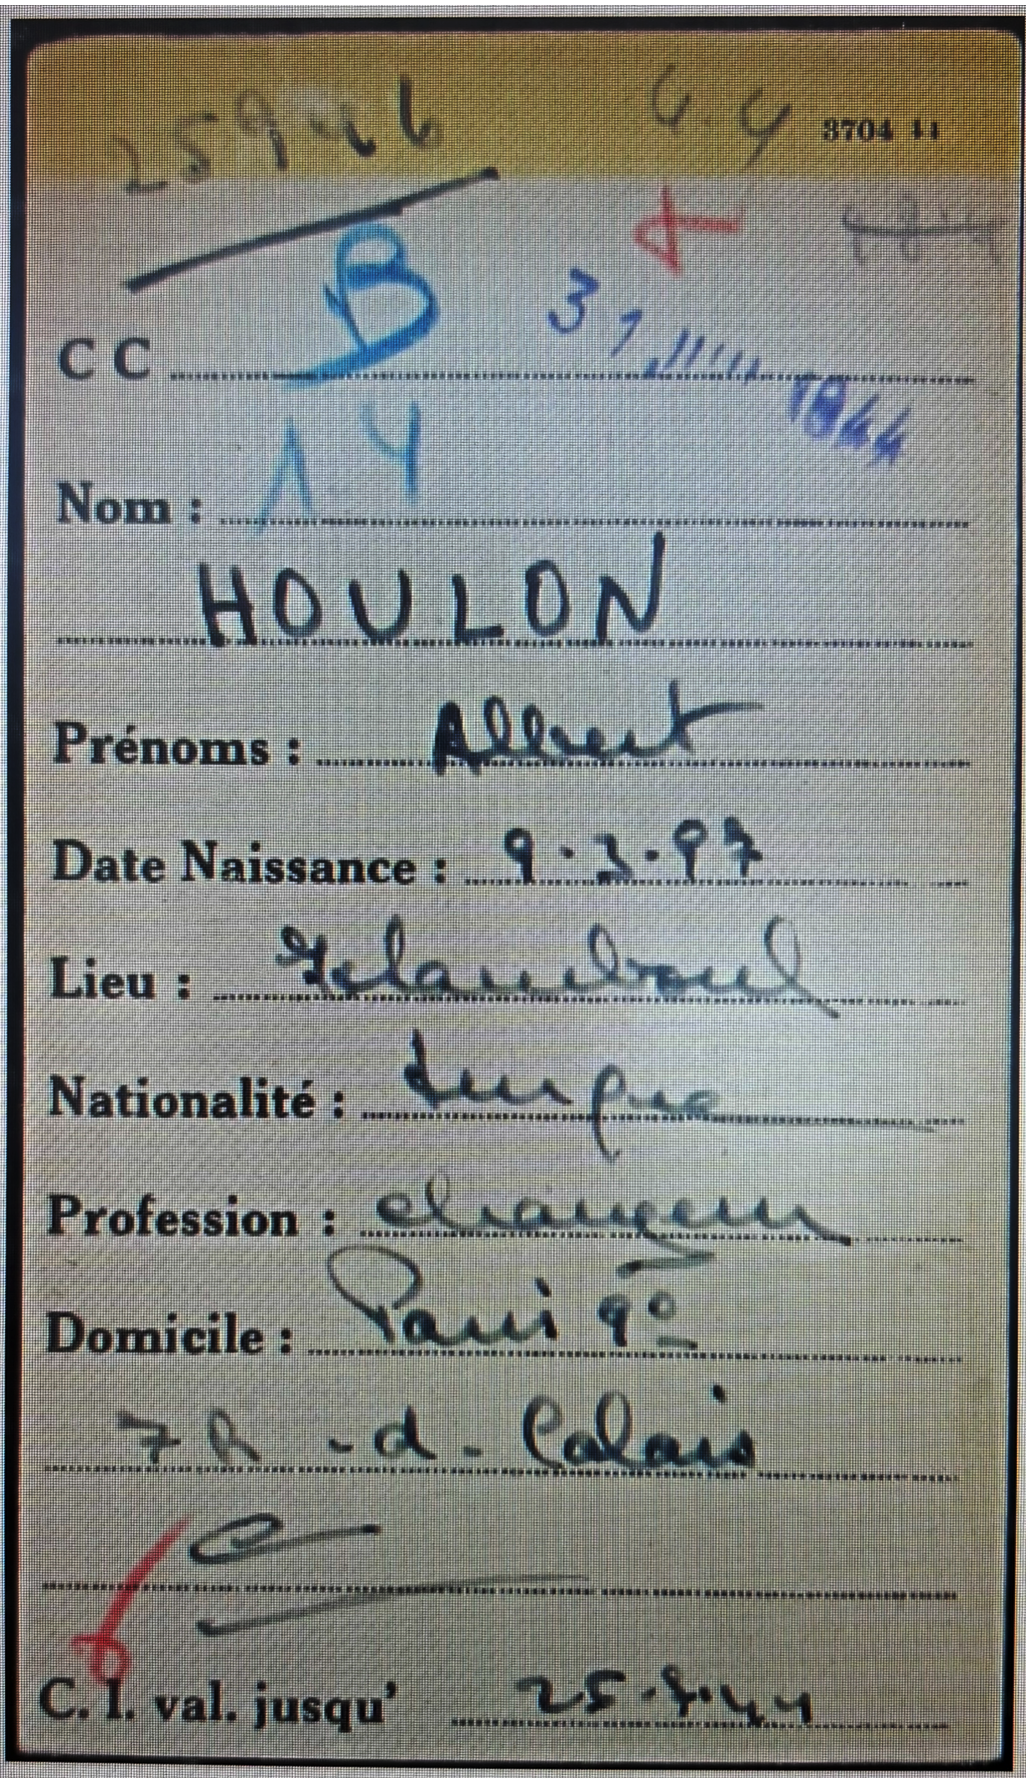 25946
4.4
3704 44
B
31 1944
CC
14
Nom :
HOULON
Prénoms : Albert
Date Naissance : 9.3.97
Lieu : Istamboul
Nationalité : turque
Profession : changeur
Domicile : Paris 9e
7 R - d - Calais
C
C. I. val. jusqu' 25.7.44